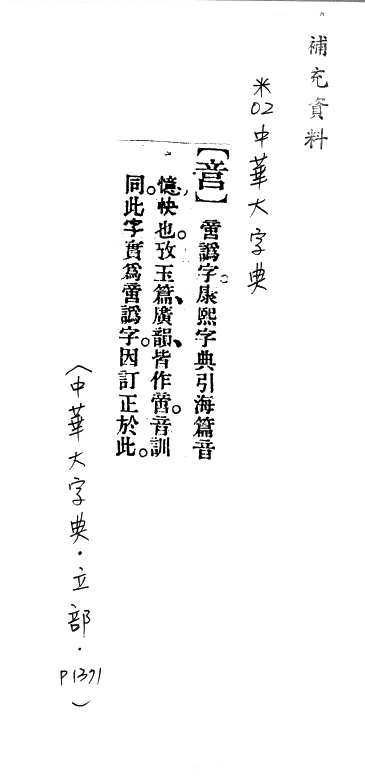 補充資料
米02中華大字典
譌字。康熙字典引海篇音
憶。快也。攷玉篇、廣韻、皆作。音訓
同。此字實爲譌字。因訂正於此。
（中華大字典．立部．P1371）